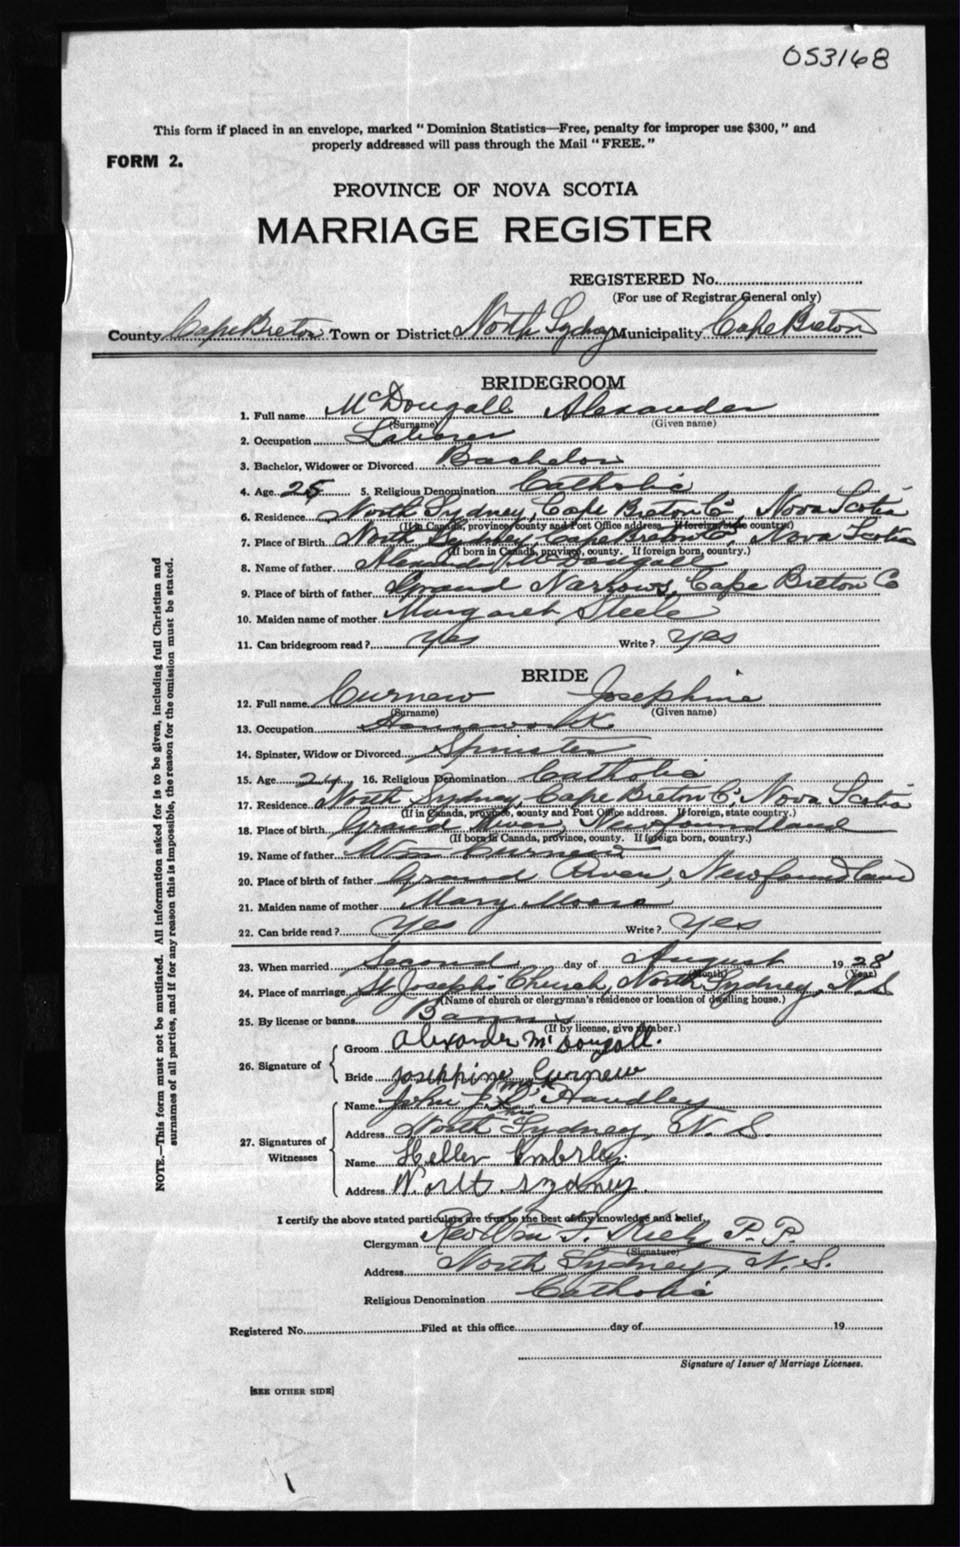 053168
This form if placed in an envelope, marked " Dominion Statistics—Free, penalty for improper use $300, " and
properly addressed will pass through the Mail " FREE. "
FORM 2.
PROVINCE OF NOVA SCOTIA
MARRIAGE REGISTER
REGISTERED No.
(For use of Registrar General only)
County Cape Breton Town or District North Sydney Municipality Cape Breton
BRIDEGROOM
1. Full name McDougall Alexander
(Surname) (Given name)
2. Occupation Laborer
3. Bachelor, Widower or Divorced Bachelor
4. Age 25 5. Religious Denomination Catholic
6. Residence North Sydney, Cape Breton Co, Nova Scotia
(If in Canada, province, county and Post Office address. If foreign, state country.)
7. Place of Birth North Sydney, Cape Breton Co, Nova Scotia
(If born in Canada, province, county. If foreign born, country.)
8. Name of father Alexander McDougall
9. Place of birth of father Grand Narrows, Cape Breton Co
10. Maiden name of mother Margaret Steele
11. Can bridegroom read ? Yes Write ? Yes
BRIDE
12. Full name Curnew Josephine
(Surname) (Given name)
13. Occupation Housework
14. Spinster, Widow or Divorced Spinster
15. Age 21 16. Religious Denomination Catholic
17. Residence North Sydney, Cape Breton Co, Nova Scotia
(If in Canada, province, county and Post Office address. If foreign, state country.)
18. Place of birth Grand River, Newfoundland
(If born in Canada, province, county. If foreign born, country.)
19. Name of father Wm Curnew
20. Place of birth of father Grand River, Newfoundland
21. Maiden name of mother Mary Moore
22. Can bride read ? Yes Write ? Yes
23. When married Second day of August 1928
(Month) (Year)
24. Place of marriage St Josephs Church, North Sydney, N.S.
(Name of church or clergyman's residence or location of dwelling house.)
25. By license or banns Banns
(If by license, give number.)
26. Signature of
Groom Alexander McDougall.
Bride Josephine Curnew
27. Signatures of Witnesses
Name John J. Handley
Address North Sydney, N. S.
Name Hellen Emberley.
Address North Sydney.
I certify the above stated particulars are true to the best of my knowledge and belief.
Clergyman Rev Wm F. Kiely P.P.
(Signature)
Address North Sydney, N.S.
Religious Denomination Catholic
Registered No. Filed at this office day of 19
Signature of Issuer of Marriage Licenses.
[SEE OTHER SIDE]
NOTE.—This form must not be mutilated. All information asked for is to be given, including full Christian and
surnames of all parties, and if for any reason this is impossible, the reason for the omission must be stated.